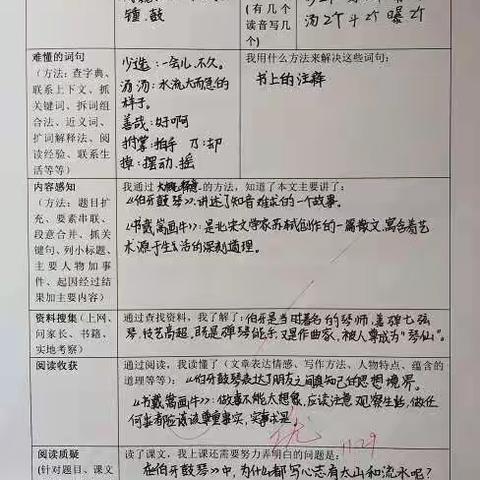 锺、鼓
(有几个
读音写几
个)
汤2个 斗2个 曝2个
难懂的词句
(方法：查字典、
联系上下文、抓
关键词、拆词组
合法、近义词、
扩词解释法、阅
读经验、联系生
活等等)
少选：一会儿，不久。
汤汤：水流大而急的
样子。
善哉：好啊
拊掌：拍手 乃：却
掉：摆动，摇
我用什么方法来解决这些词句：
书上的注释
内容感知
(方法：题目扩
充、要素串联、
段意合并、抓关
键句、列小标题、
主要人物加事
件、起因经过结
果加主要内容)
我通过 的方法，知道了本文主要讲了：
《伯牙鼓琴》讲述了知音难求的一个故事。
《书戴嵩画牛》：是北宋文学家苏轼创作的一篇散文，寓含着艺
术源于生活的深刻道理。
资料搜集(上网、
问家长、书籍、
实地考察)
通过查找资料，我了解了：伯牙是当时著名的琴师，善弹七弦
琴，技艺高超，既是弹琴能手，又是作曲家，被人尊成为“琴仙”。
阅读收获
通过阅读，我读懂了（文章表达情感、写作方法、人物特点、蕴含的
道理等等)：《伯牙鼓琴表达了朋友之间真知己的思想境界。
《书戴嵩画牛》：做事不能太想象，应该注意观察生活，做任
何事都应该尊重事实，实事求是。
优 11.29
阅读质疑
(针对题目、课文
读了课文，我上课还需要努力弄明白的问题是：
在伯牙鼓琴》中，为什么都写心志有太山和流水呢?